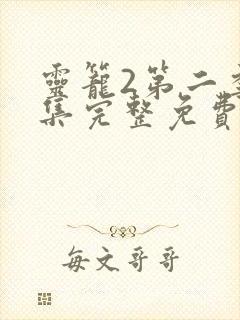 靈籠2第二
集完整免費
每文哥哥